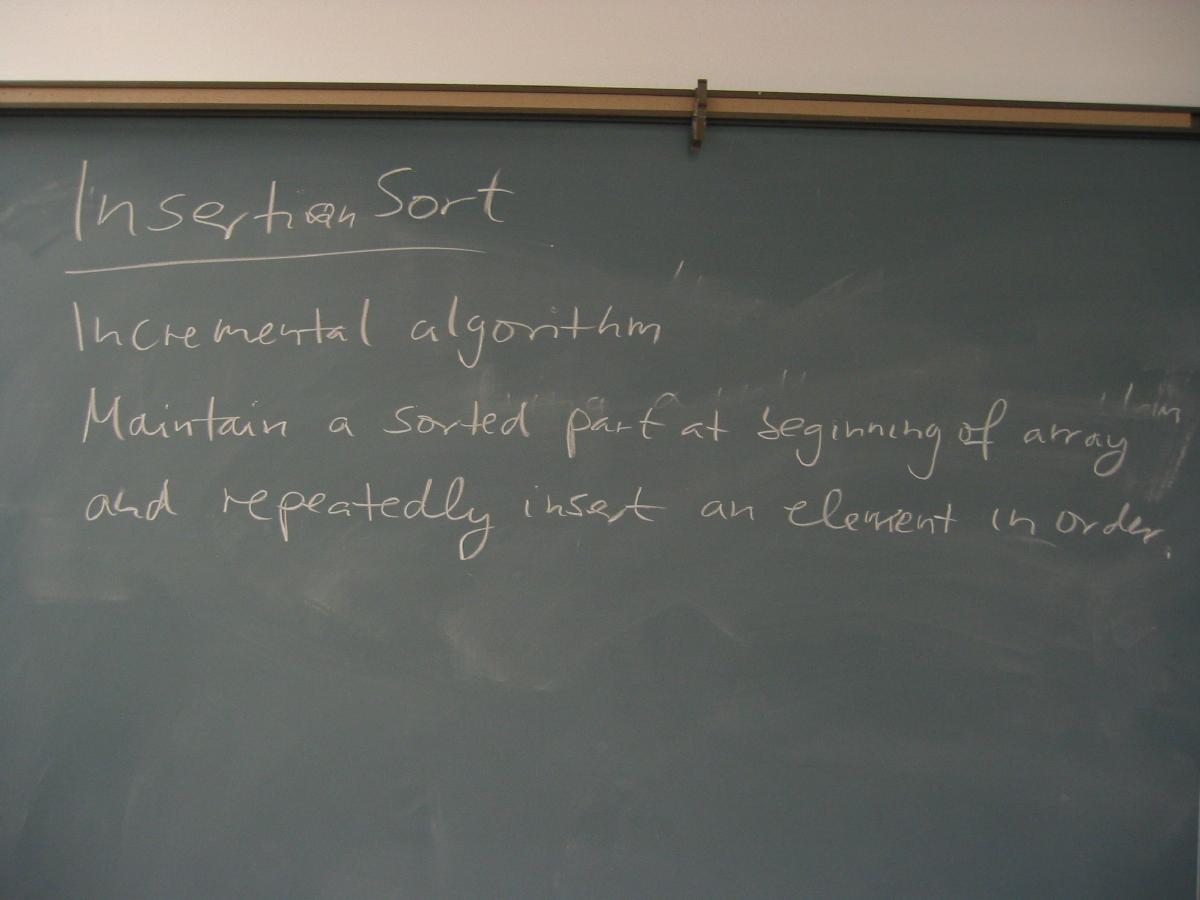 Insertion Sort
Incremental algorithm
Maintain a sorted part at beginning of array
and repeatedly insert an element in order.